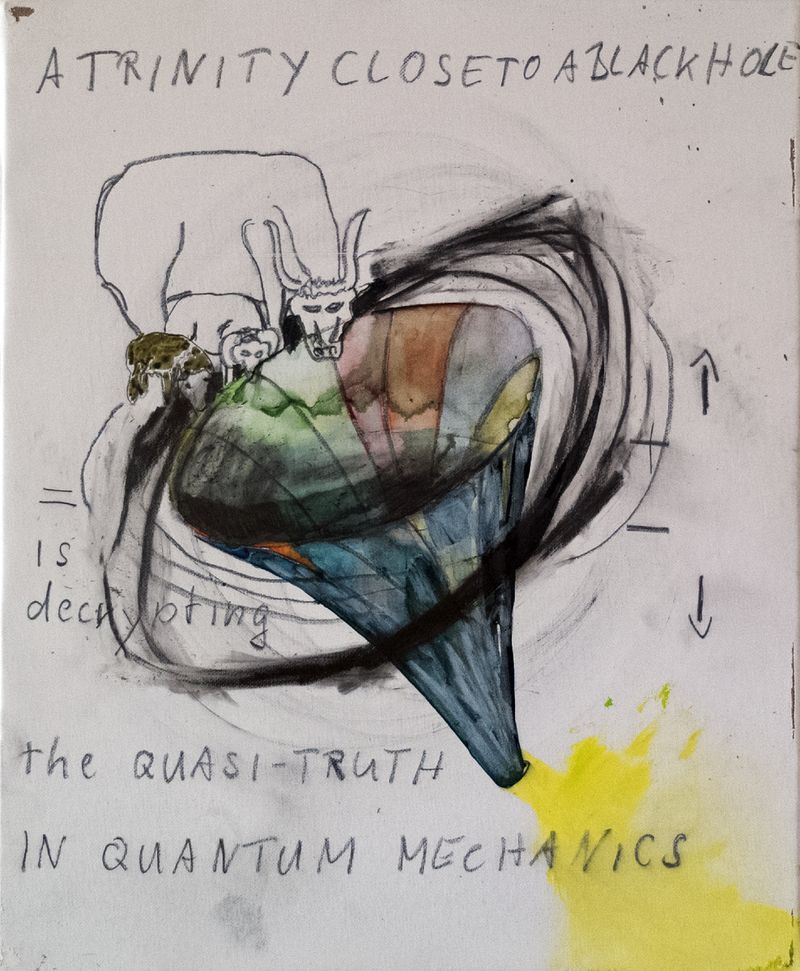 A TRINITY CLOSE TO A BLACK HOLE
=
is
decrypting
the QUASI-TRUTH
IN QUANTUM MECHANICS